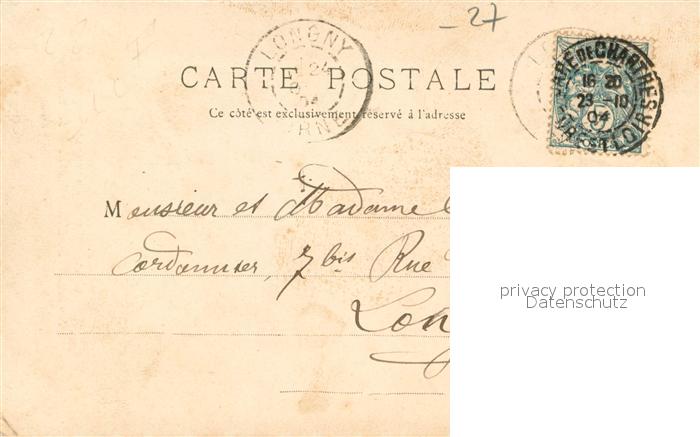 -27
LONGNY
ORNE
GARE DE CHARTRES
16 20
23 -10
04
EURE ET LOIR
CARTE POSTALE
Ce côté est exclusivement réservé à l'adresse
Monsieur et Madame
Cordonnier, 7 bis Rue
Lon
privacy protection
Datenschutz